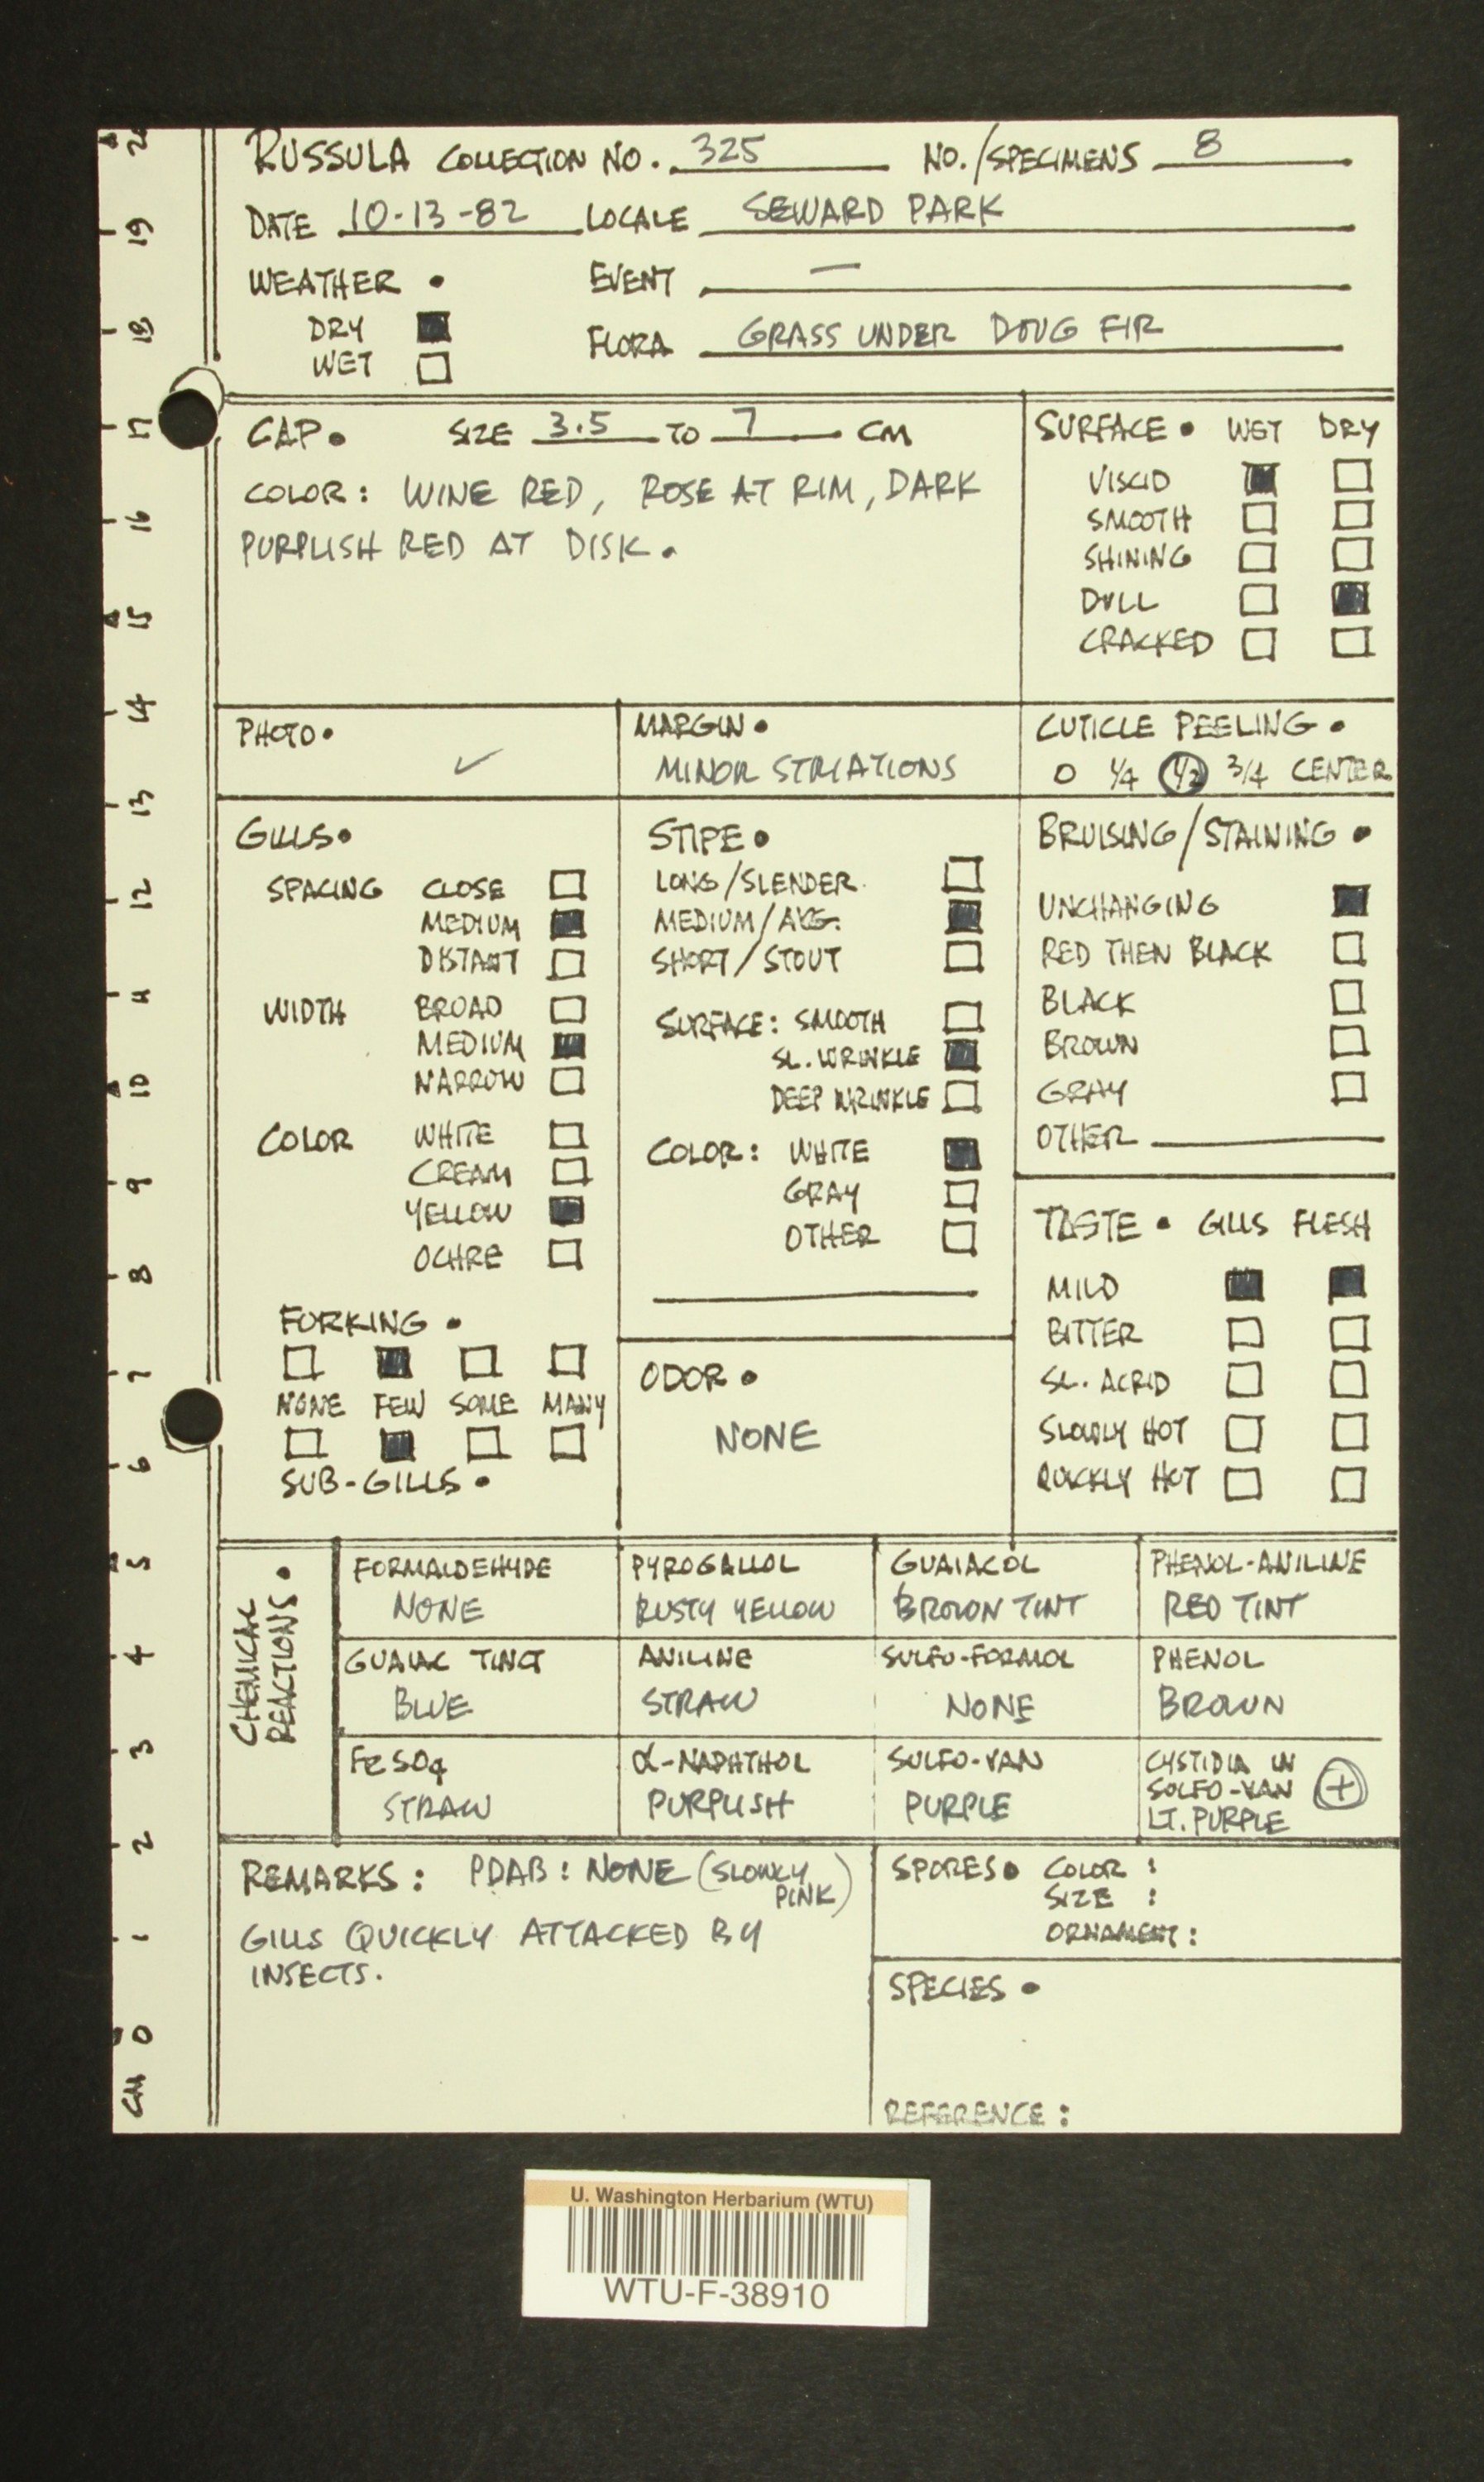 RUSSULA COLLECTION NO. 325 NO./SPECIMENS 8
DATE 10-13-82 LOCALE SEWARD PARK
WEATHER • EVENT —
DRY ■
WET □ FLORA GRASS UNDER DOUG FIR
CAP • SIZE 3.5 TO 7 CM
COLOR: WINE RED, ROSE AT RIM, DARK
PURPLISH RED AT DISK.
SURFACE • WET DRY
VISCID ■ □
SMOOTH □ □
SHINING □ □
DULL □ ■
CRACKED □ □
PHOTO • ✓
MARGIN •
MINOR STRIATIONS
CUTICLE PEELING •
0 1/4 1/2 3/4 CENTER
GILLS •
SPACING CLOSE □
MEDIUM ■
DISTANT □
WIDTH BROAD □
MEDIUM ■
NARROW □
COLOR WHITE □
CREAM □
YELLOW ■
OCHRE □
FORKING •
□ ■ □ □
NONE FEW SOME MANY
□ ■ □ □
SUB-GILLS •
STIPE •
LONG/SLENDER □
MEDIUM/AVG. ■
SHORT/STOUT □
SURFACE: SMOOTH □
SL. WRINKLE ■
DEEP WRINKLE □
COLOR: WHITE ■
GRAY □
OTHER □
ODOR •
NONE
BRUISING/STAINING •
UNCHANGING ■
RED THEN BLACK □
BLACK □
BROWN □
GRAY □
OTHER
TASTE • GILLS FLESH
MILD ■ ■
BITTER □ □
SL. ACRID □ □
SLOWLY HOT □ □
QUICKLY HOT □ □
CHEMICAL
REACTIONS •
FORMALDEHYDE
NONE
PYROGALLOL
RUSTY YELLOW
GUAIACOL
BROWN TINT
PHENOL-ANILINE
RED TINT
GUAIAC TINCT
BLUE
ANILINE
STRAW
SULFO-FORMOL
NONE
PHENOL
BROWN
FeSO4
STRAW
α-NAPHTHOL
PURPLISH
SULFO-VAN
PURPLE
CYSTIDIA IN
SULFO-VAN +
LT. PURPLE
REMARKS: PDAB: NONE (SLOWLY
PINK)
GILLS QUICKLY ATTACKED BY
INSECTS.
SPORES • COLOR:
SIZE:
ORNAMENT:
SPECIES •
REFERENCE:
20
19
18
17
16
15
14
13
12
11
10
9
8
7
6
5
4
3
2
1
0
CM
U. Washington Herbarium (WTU)
WTU-F-38910